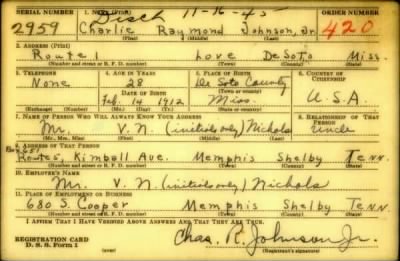 Disch 11-16-45
SERIAL NUMBER 1. NAME (Print) ORDER NUMBER
2959 Charlie Raymond Johnson, Jr. 420
(First) (Middle) (Last)
2. ADDRESS (Print)
Route 1 Love De Soto Miss.
(Number and street or R. F. D. number) (Town) (County) (State)
3. TELEPHONE 4. AGE IN YEARS 5. PLACE OF BIRTH 6. COUNTRY OF CITIZENSHIP
None 28 De Soto County
DATE OF BIRTH (Town or county)
Feb. 14 1912 Miss. U.S.A.
(Exchange) (Number) (Mo.) (Day) (Yr.) (State or country)
7. NAME OF PERSON WHO WILL ALWAYS KNOW YOUR ADDRESS 8. RELATIONSHIP OF THAT PERSON
Mr. V. N. (initials only) Nichols Uncle
(Mr., Mrs., Miss) (First) (Middle) (Last)
9. ADDRESS OF THAT PERSON
Box 651
Route 5, Kimball Ave. Memphis Shelby Tenn.
(Number and street or R. F. D. number) (Town) (County) (State)
10. EMPLOYER'S NAME
Mr. V. N. (initials only) Nichols
11. PLACE OF EMPLOYMENT OR BUSINESS
680 S. Cooper Memphis Shelby Tenn.
(Number and street or R. F. D. number) (Town) (County) (State)
I AFFIRM THAT I HAVE VERIFIED ABOVE ANSWERS AND THAT THEY ARE TRUE.
REGISTRATION CARD
D. S. S. Form 1 Chas. R. Johnson Jr.